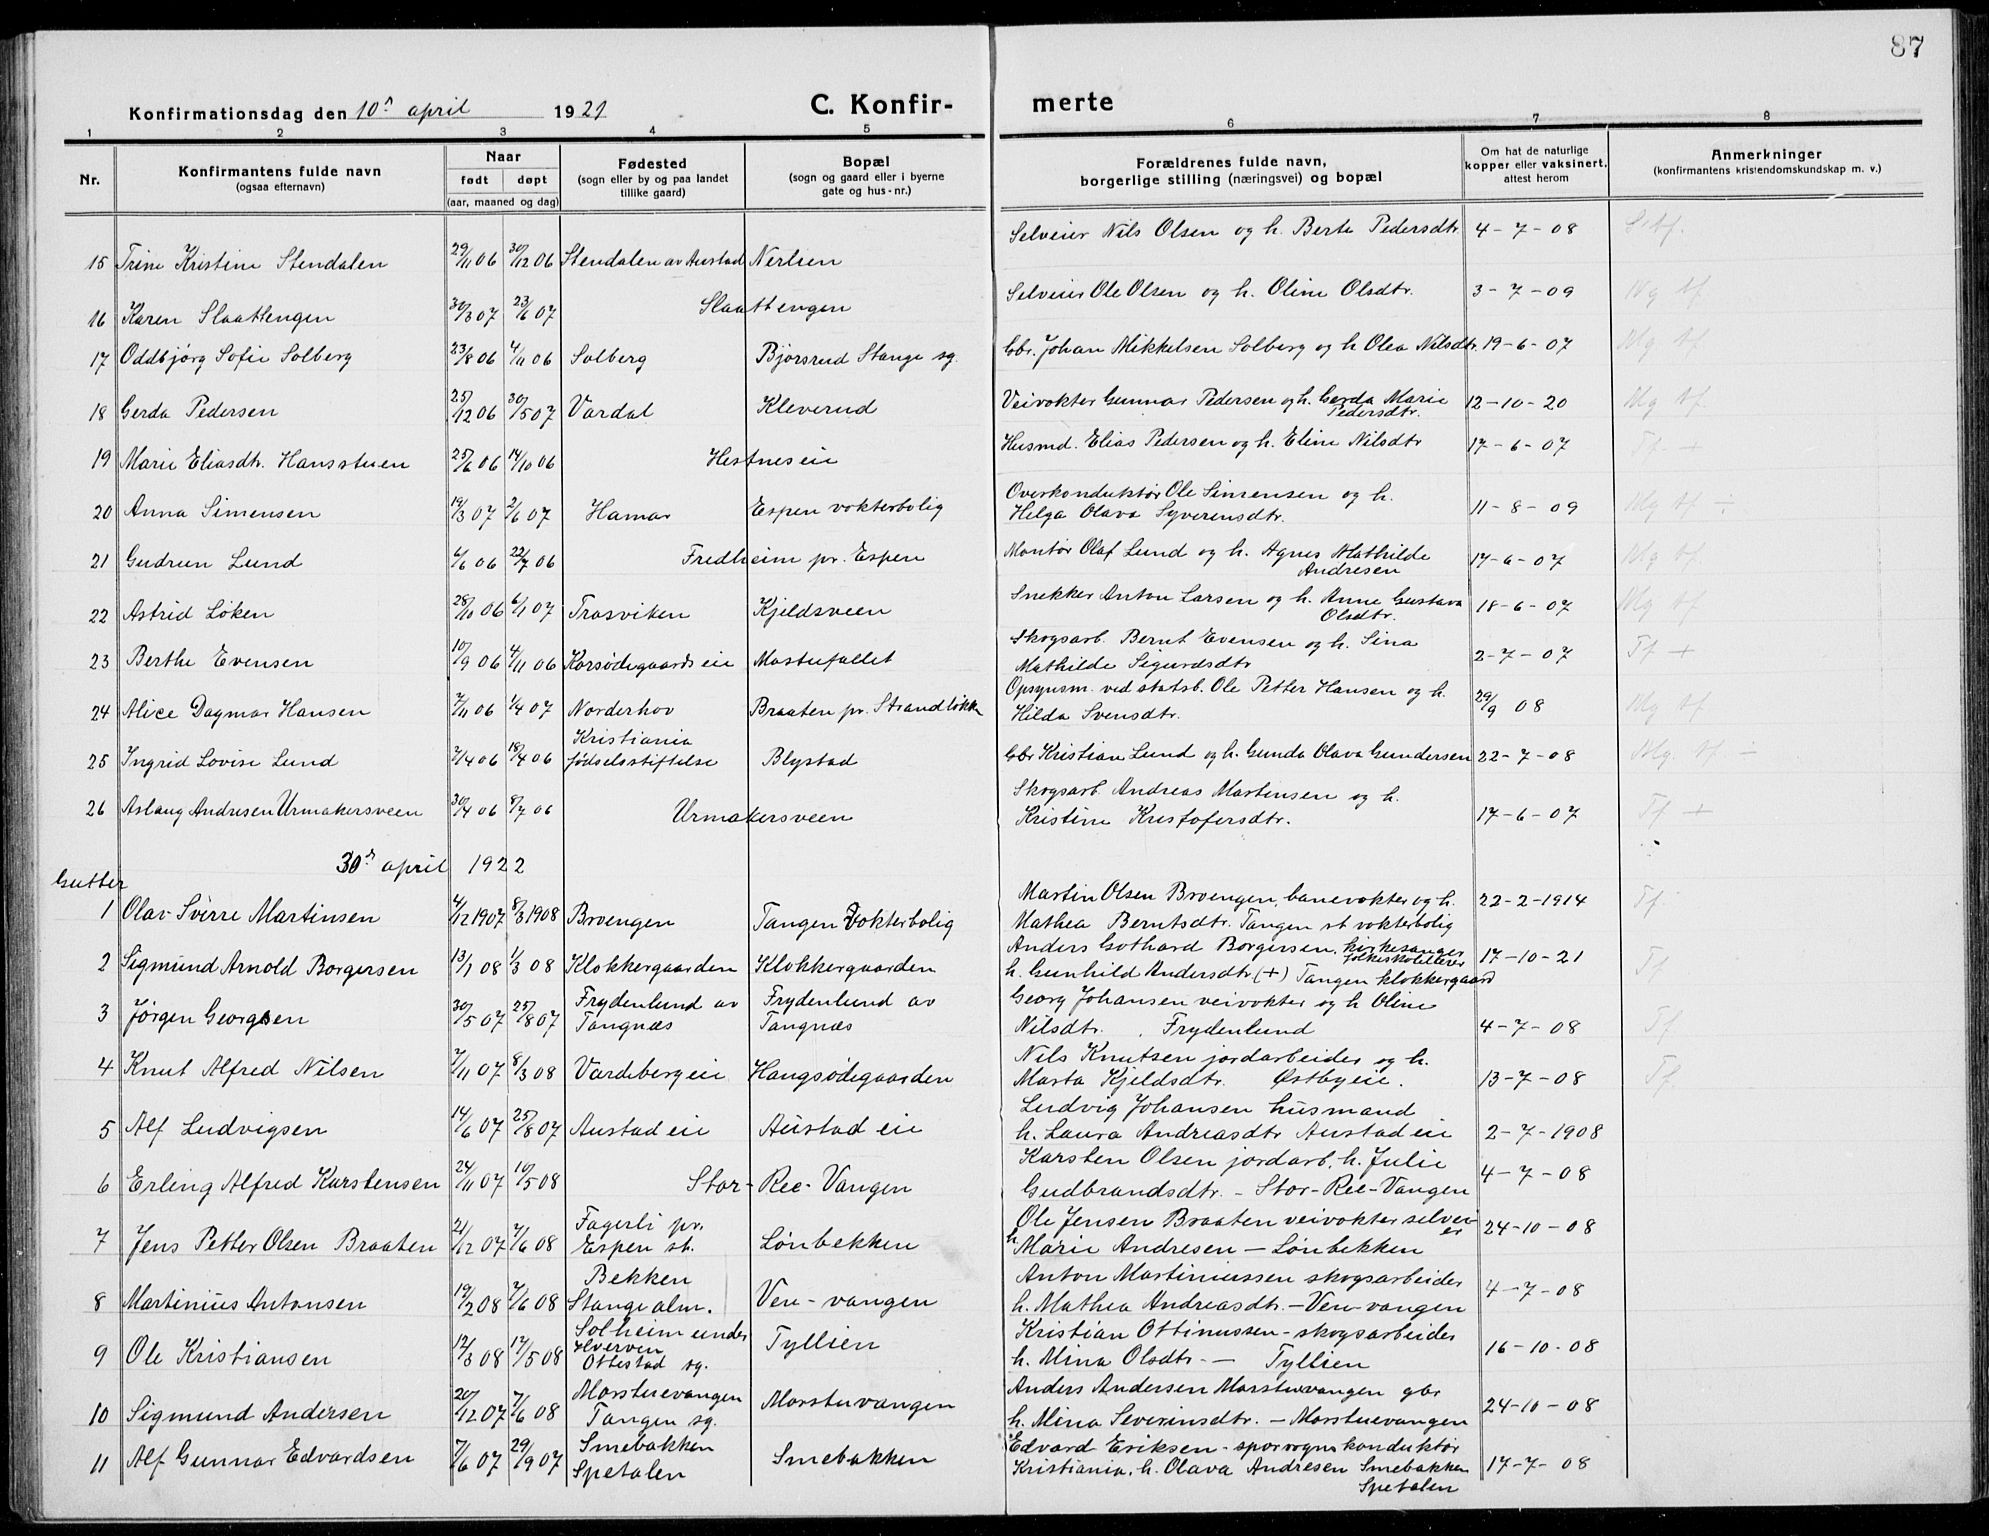 87
Konfirmationsdag den 10de april 1921 C. Konfir- merte
1 2 3 4 5 6 7 8
Nr. Konfirmantens fulde navn (ogsaa efternavn) Naar født døpt (aar, maaned og dag) Fødested (sogn eller by og paa landet tillike gaard) Bopæl (sogn og gaard eller i byerne gate og hus-nr.) Forældrenes fulde navn, borgerlige stilling (næringsvei) og bopæl Om hat de naturlige kopper eller vaksinert, attest herom Anmerkninger (konfirmantens kristendomskundskap m. v.)
15 Trine Kristine Stendalen 29/11 06 30/12 06 Stendalen av Austad Nerlien Selveier Nils Olsen og h. Berte Pedersdtr. 4-7-08
16 Karen Slaattengen 30/3 07 23/6 07 Slaattengen Selveier Ole Olsen og h. Oline Olsdtr. 3-7-09 Mg tf.
17 Oddbjørg Sofie Solberg 23/8 06 4/11 06 Solberg Bjørsrud Stange sg. Gbr. Johan Mikkelsen Solberg og h Olea Nilsdtr. 19-6-07 Mg tf.
18 Gerda Pedersen 25/12 06 30/5 07 Vardal Kleverud Veivokter Gunnar Pedersen og h. Gerda Marie Pedersdtr. 12-10-20 Mg tf.
19 Marie Eliasdtr. Hansstuen 25/6 06 14/10 06 Hestneseie Husmd. Elias Pedersen og h. Eline Nilsdtr 17-6-07 Tf +
20 Anna Simensen 19/3 07 2/6 07 Hamar Espen vokterbolig Overkonduktør Ole Simensen og h. Helga Olava Syverensdtr. 11-8-09 Mg tf ÷
21 Gudrun Lund 4/6 06 22/7 06 Fredheim pr. Espen Montør Olaf Lund og h. Agnes Mathilde Andresen 17-6-07 Mg tf.
22 Astrid Løken 28/10 06 6/1 07 Trasviken Kjeldsveen Snekker Anton Larsen og h. Anne Gustava Olsdtr. 18-6-07 Mg tf.
23 Berthe Evensen 10/9 06 4/11 06 Korsødegaards eie Mostuefallet Skogsarb. Bernt Evensen og h. Sina Mathilde Sigurdsdtr 2-7-07 Tf +
24 Alice Dagmar Hansen 7/11 06 1/4 07 Norderhov Braaten pr. Strandløkken Opsynsm. ved statsb. Ole Petter Hansen og h. Hilda Svensdtr. 29/9 08 Mg tf
25 Ingrid Lovise Lund 7/4 06 18/4 06 Kristiania fødselsstiftelse Blystad Gbr Kristian Lund og h. Gunda Olava Gundersen 22-7-08 Mg. tf ÷
26 Aslaug Andresen Urmakersveen 30/4 06 8/7 06 Urmakersveen Skogsarb. Andreas Martinsen og h. Kristine Kristofersdtr. 17-6-07 Tf +
30te april 1922
Gutter
1 Olav Sverre Martinsen 4/12 1907 8/3 1908 Broengen Tangen Vokterbolig Martin Olsen Broengen, banevokter og h. Mathea Berntsdtr. Tangen st vokterbolig 22-2-1914 Tf
2 Sigmund Arnold Borgersen 13/1 08 1/3 08 Klokkergaarden Klokkergaarden Anders Gothard Borgersen, kirkesanger folkeskolelærer h. Gunhild Andersdtr (+) Tangen klokkergaard 17-10-21 Tf
3 Jørgen Georgsen 30/5 07 25/8 07 Frydenlund av Tangnæs Frydenlund av Tangnæs Georg Johansen veivokter og h Oline Nilsdtr. Frydenlund 4-7-08 Tf
4 Knut Alfred Nilsen 7/11 07 8/3 08 Vardeberg eie Haugsødegaarden Nils Knutsen jordarbeider og h. Marta Kjeldsdtr. Østbyeie. 13-7-08 Tf
5 Alf Ludvigsen 14/6 07 25/8 07 Austad eie Austad eie Ludvig Johansen husmand h. Laura Andreasdtr Austad eie 2-7-1908
6 Erling Alfred Karstensen 24/11 07 10/5 08 Stor-Ree-Vangen Karsten Olsen jordarb, h. Julie Gudbrandsdtr. - Stor-Ree-Vangen 4-7-08
7 Jens Petter Olsen Braaten 21/12 07 7/6 08 Fagerli pr. Espen st. Lønbekken Ole Jensen Braaten veivokter selveier h. Marie Andresen - Lønbekken 24-10-08
8 Martinius Antonsen 19/2 08 7/6 08 Bekken Stange alm. Ven-vangen Anton Martiniussen skogsarbeider h. Mathea Andreasdtr. - Ven-vangen 4-7-08
9 Ole Kristiansen 12/3 08 17/5 08 Solheim under Hverven Ottestad sg. Tyllien Kristian Ottinussen - skogsarbeider h. Mina Olsdtr. - Tyllien 16-10-08
10 Sigmund Andersen 20/12 07 7/6 08 Morstuevangen Tangen sg. Morstuvangen Anders Andersen Morstuvangen gbr h. Mina Severinsdtr. - Morstuevangen 24-10-08
11 Alf Gunnar Edvardsen 7/6 07 29/9 07 Smebakken Spetalen Smebakken Edvard Eriksen - sporvognskonduktør Kristiania, h. Olava Andresen Smebakken Spetalen 17-7-08